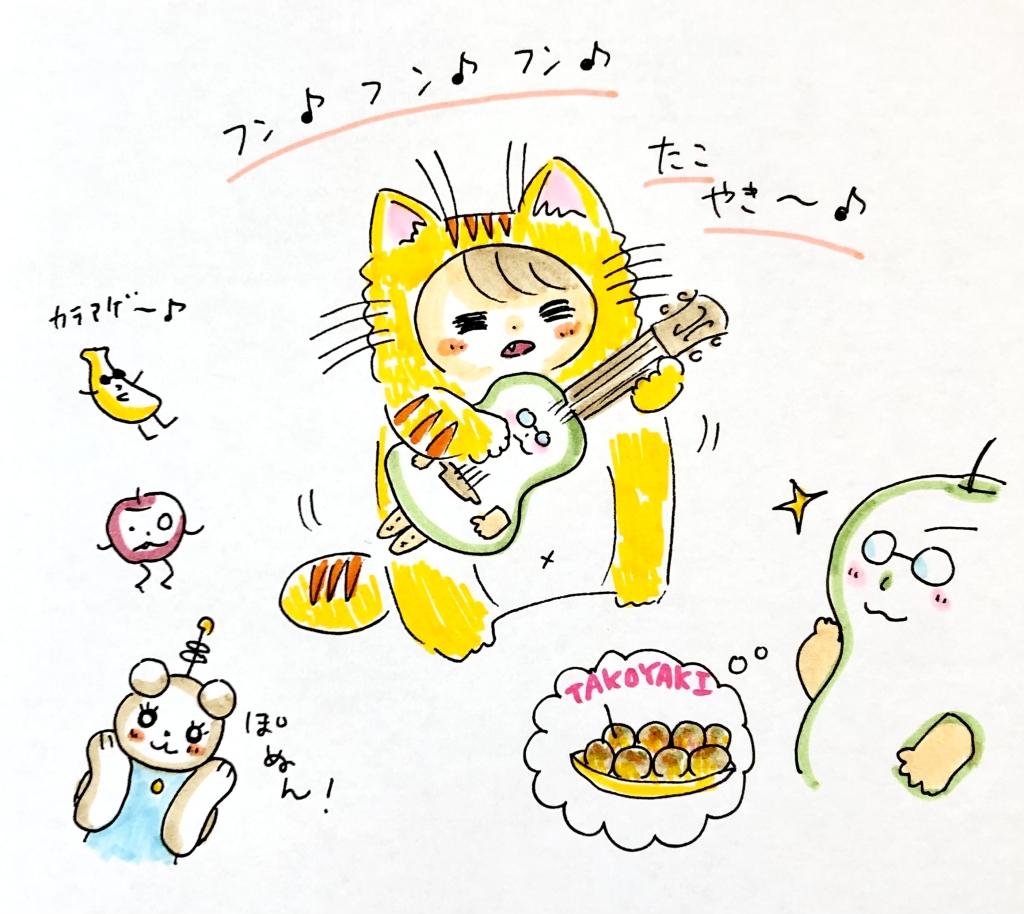 フン♪フン♪フン♪
たこ
やき〜♪
カラアゲ〜♪
ぽ
ぬ
ん！
TAKOYAKI